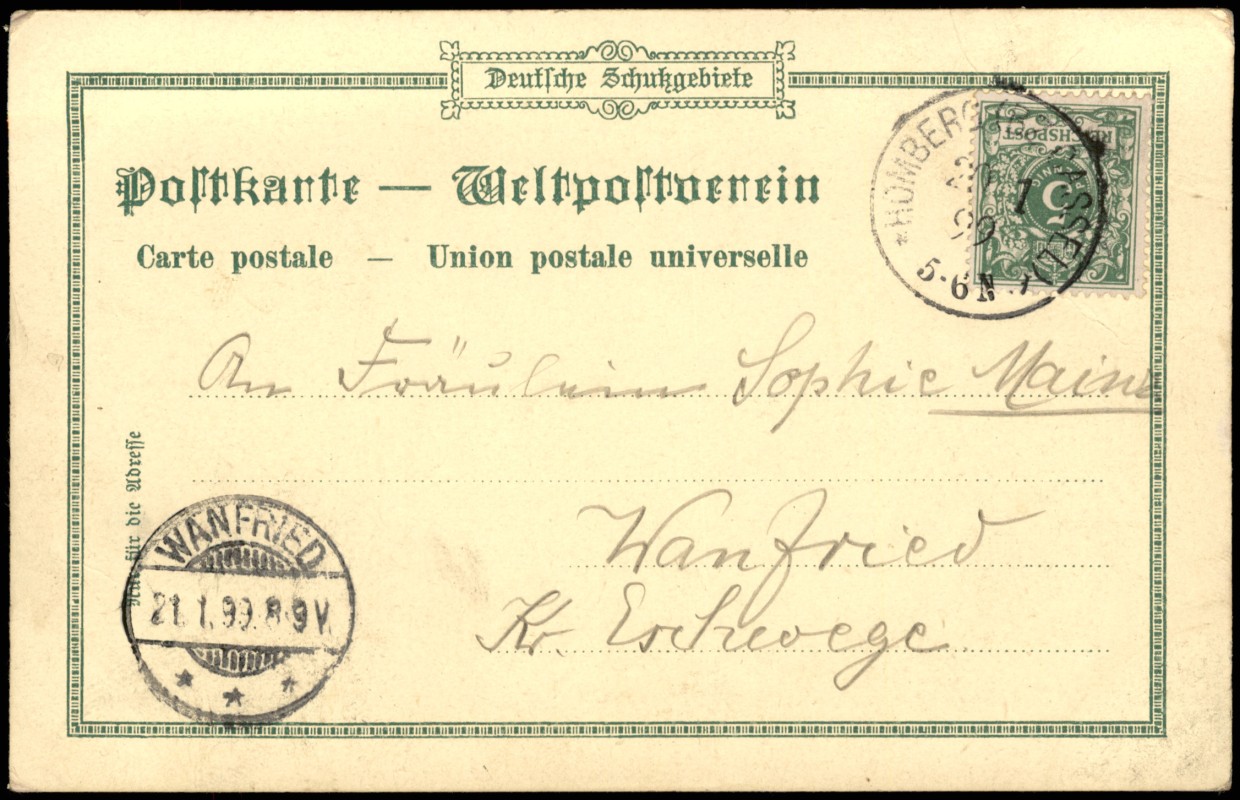 Deutsche Schutzgebiete
Postkarte — Weltpostverein
Carte postale — Union postale universelle
REICHSPOST
5
* HOMBERG (B. CASSEL) *
1
99
5-6 N
An Fräulein Sophie
Wanfried
Kr. Eschwege
Nur für die Adresse
WANFRIED
21. 1. 99. 8-9 V.
* * *